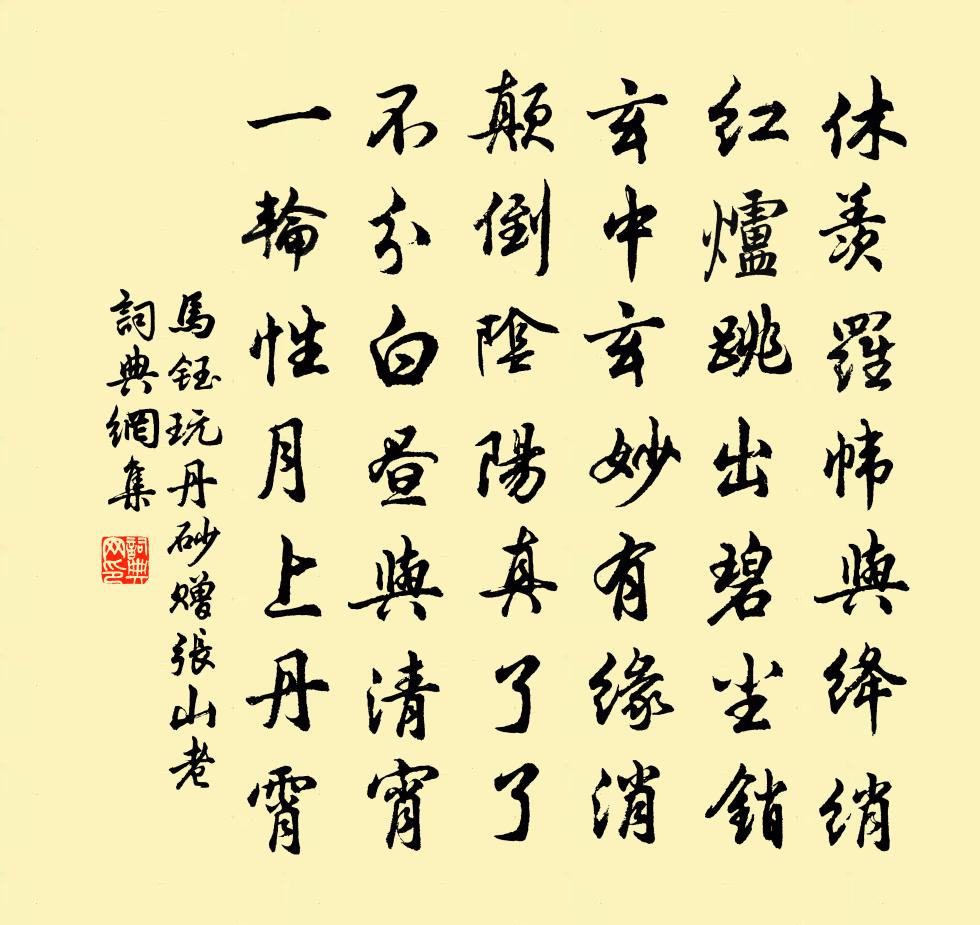 休羨羅幃與絳綃
紅爐跳出碧尘銷
玄中玄妙有緣消
顛倒陰陽真了了
不分白晝與清宵
一輪性月上丹霄
馬鈺玩丹砂赠張山老
詞典網集
詞典网印